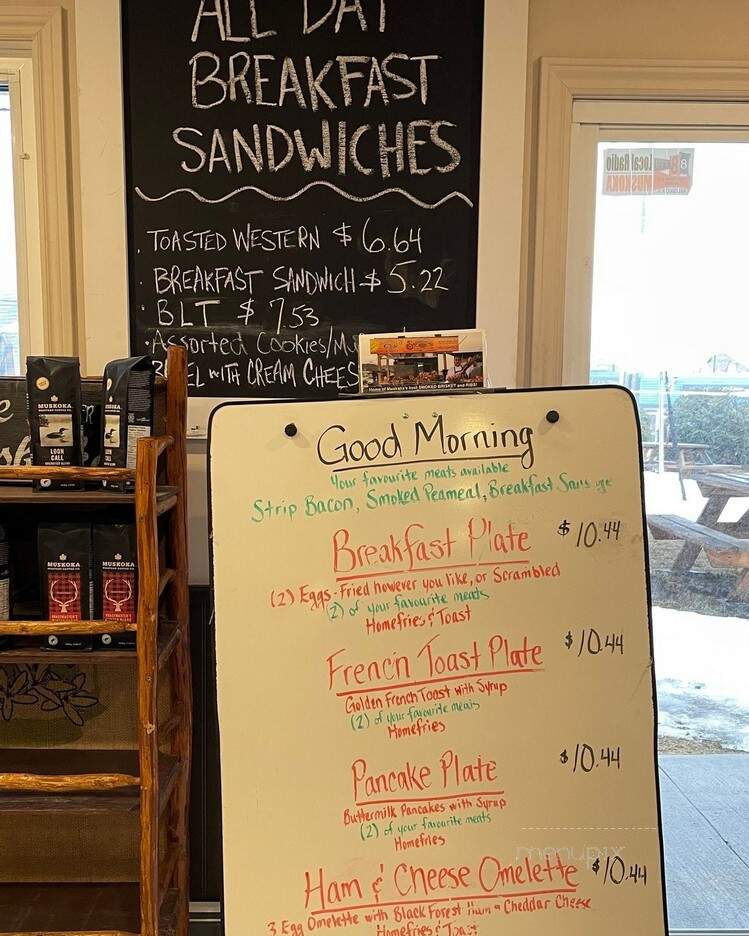 ALL DAY
BREAKFAST
SANDWICHES
· TOASTED WESTERN $6.64
· BREAKFAST SANDWICH $5.22
· BLT $7.53
· Assorted Cookies/Mu
WITH CREAM CHEES
Home of Muskoka's best SMOKED BRISKET and RIBS!
Local Radio
MUSKOKA
MUSKOKA
LOON
CALL
MUSKOKA
LOON
CALL
MUSKOKA
MUSKOKA
Good Morning
Your favourite meats available
Strip Bacon, Smoked Peameal, Breakfast Sausage
Breakfast Plate $10.44
(2) Eggs - Fried however you like, or Scrambled
(2) of your favourite meats
Homefries & Toast
French Toast Plate $10.44
Golden French Toast with Syrup
(2) of your favourite meats
Homefries
Pancake Plate $10.44
Buttermilk Pancakes with Syrup
(2) of your favourite meats
Homefries
menupix
Ham & Cheese Omelette $10.44
3 Egg Omelette with Black Forest Ham & Cheddar Cheese
Homefries & Toast